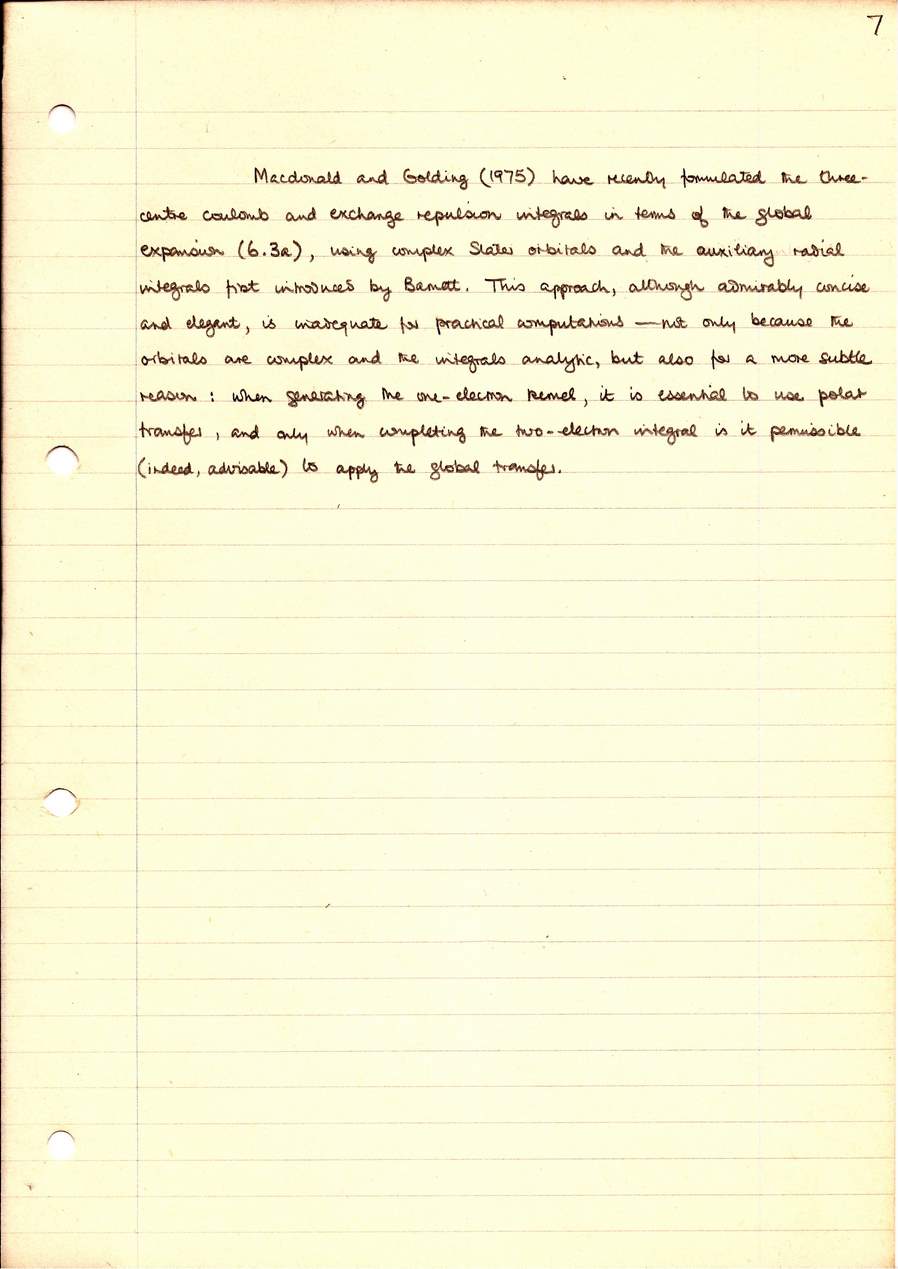 7
Macdonald and Golding (1975) have recently formulated the three-
centre coulomb and exchange repulsion integrals in terms of the global
expansion (6.3a), using complex Slater orbitals and the auxiliary radial
integrals first introduced by Barnett. This approach, although admirably concise
and elegant, is inadequate for practical computations — not only because the
orbitals are complex and the integrals analytic, but also for a more subtle
reason : when generating the one-electron kernel, it is essential to use polar
transfer, and only when completing the two-electron integral is it permissible
(indeed, advisable) to apply the global transfer.